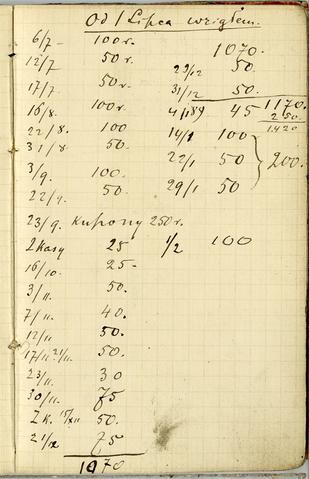 Od 1 Lipca wziąłem.
6/7 – 100 r.
12/7 50 r.
17/7 50 r.
16/8. 100 r.
22/8. 100
31/8 50.
3/9. 100.
22/9. 50.
23/9. Kupony 250 r.
Z kasy 25
16/10. 25 –
3/11. 50.
7/11. 40.
12/11 50.
17/11 21/11. 50.
23/11. 30
30/11. 75
Z k. 15/XII 50.
21/12 75
1070
1070.
29/12 50.
31/12 50.
1170.
4/1 89 45
250.
1420
14/1 100
22/1 50
29/1 50
200.
1/2 100